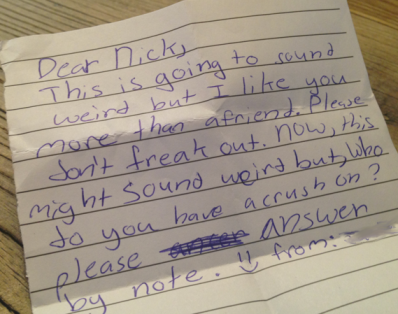 Dear Nick,
This is going to sound
weird but I like you
more than afriend. Please
don't freak out. now, this
might sound weird but, Who
do you have a crush on?
please answer
by note. from: